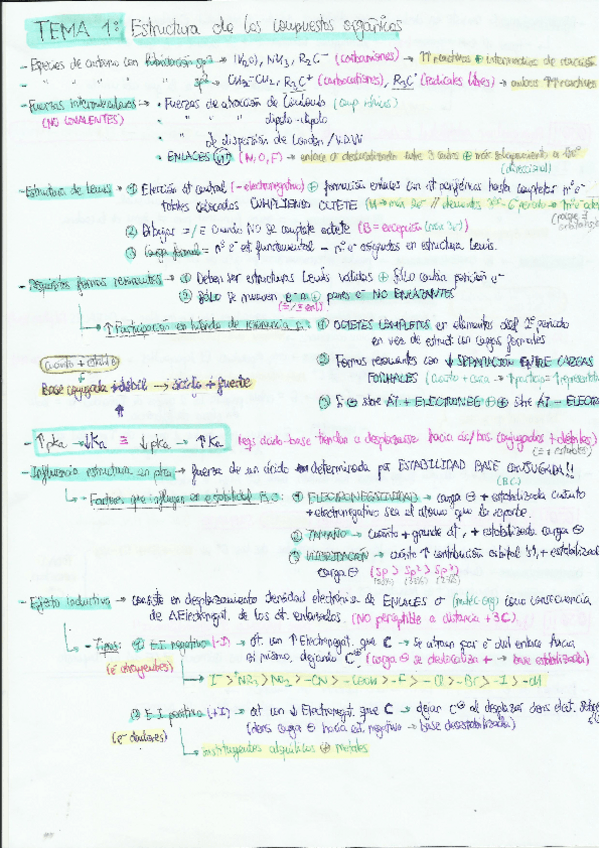 TEMA 1: Estructura de los compuestos orgánicos
- Especies de carbono con hibridación sp³ → (H₂O), NH₃, R₃C⁻ (carbaniones) → ↑↑ reactivos ⊕ intermedios de reacción
" " " " sp² → CH₂=CH₂, R₃C⁺ (carbocationes), R₃C· (radicales libres) → ambos ↑↑ reactivos
- Fuerzas intermoleculares → • Fuerzas de atracción de Coulomb
(NO COVALENTES) • " " dipolo-dipolo
• " de dispersión de London / V.D.W
• ENLACES (N, O, F) → enlace σ deslocalizado sobre 3 centros ⊕ más
(direccional)
- Estructura de Lewis → ① Elección át central (- electronegativo) ⊕ formación enlaces con át periféricos hasta completar nº e⁻
totales colocados CUMPLIENDO OCTETE
② Dibujar =/≡ cuando NO se complete octete (B = excepción)
③ Carga formal = nº e⁻ est. fundamental - nº e⁻ asignados en estructura Lewis.
- Requisitos formas resonantes → ① Deben ser estructuras Lewis válidas ⊕ sólo cambia posición e⁻
② SÓLO se mueven e⁻ π ⊕ pares e⁻ NO ENLAZANTES
↑ Participación en híbrido de resonancia si: ① OCTETES COMPLETOS en elementos del 2º periodo
en vez de estruct con cargas formales
② Formas resonantes con ↓ SEPARACIÓN ENTRE CARGAS
FORMALES
③ Si ⊖ sobre ÁT + ELECTRONEG ⊕ ⊕ sobre ÁT - ELECTR
Base conjugada + débil → ácido + fuerte
- ↑ pKa → ↓ Ka ≅ ↓ pKa → ↑ Ka (regs ácido-base tienden a desplazarse hacia ác/bas conjugados + débiles)
(= + estables)
- Influencia estructura en pKa → fuerza de un ácido determinada por ESTABILIDAD BASE CONJUGADA!!
(B.C.)
- Factores que influyen en estabilidad B.C: ① ELECTRONEGATIVIDAD → carga ⊖ + estabilizada cuanto
+ electronegativo sea el átomo que la soporte.
② TAMAÑO → cuanto + grande át, + estabilizada carga ⊖
③ HIBRIDACIÓN → cuanto ↑ contribución orbital "s", + estabilizada
carga ⊖ (sp > sp² > sp³)
- Efecto inductivo → consiste en desplazamiento densidad electrónica de ENLACES σ como consecuencia
de ΔElectronegat. de los át. enlazados. (No perceptible a distancia +3C).
- Tipos: ① E.I negativo (-I) → át. con ↑ Electronegat. que C → se atraen par e⁻ del enlace hacia
(e⁻ atrayentes) sí mismo, dejando C (carga ⊖ se deslocaliza + → base estabilizada)
> NR₃ > NO₂ > -CN > -COOH > -F > -Cl > -Br > -I > -OH
② E.I positivo (+I) → át con ↓ Electronegat. que C → dejar C al desplazar dens. elect.
(e⁻ dadores) (dens carga ⊖ hacia át. negativo → base desestabilizada)
→ sustituyentes alquílicos ⊕ metales